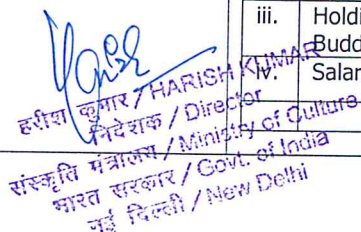 iii. Holdi
Budd
iv. Salar
हरीश कुमार / HARISH KUMAR
निदेशक / Director
संस्कृति मंत्रालय / Ministry of Culture
भारत सरकार / Govt. of India
नई दिल्ली / New Delhi